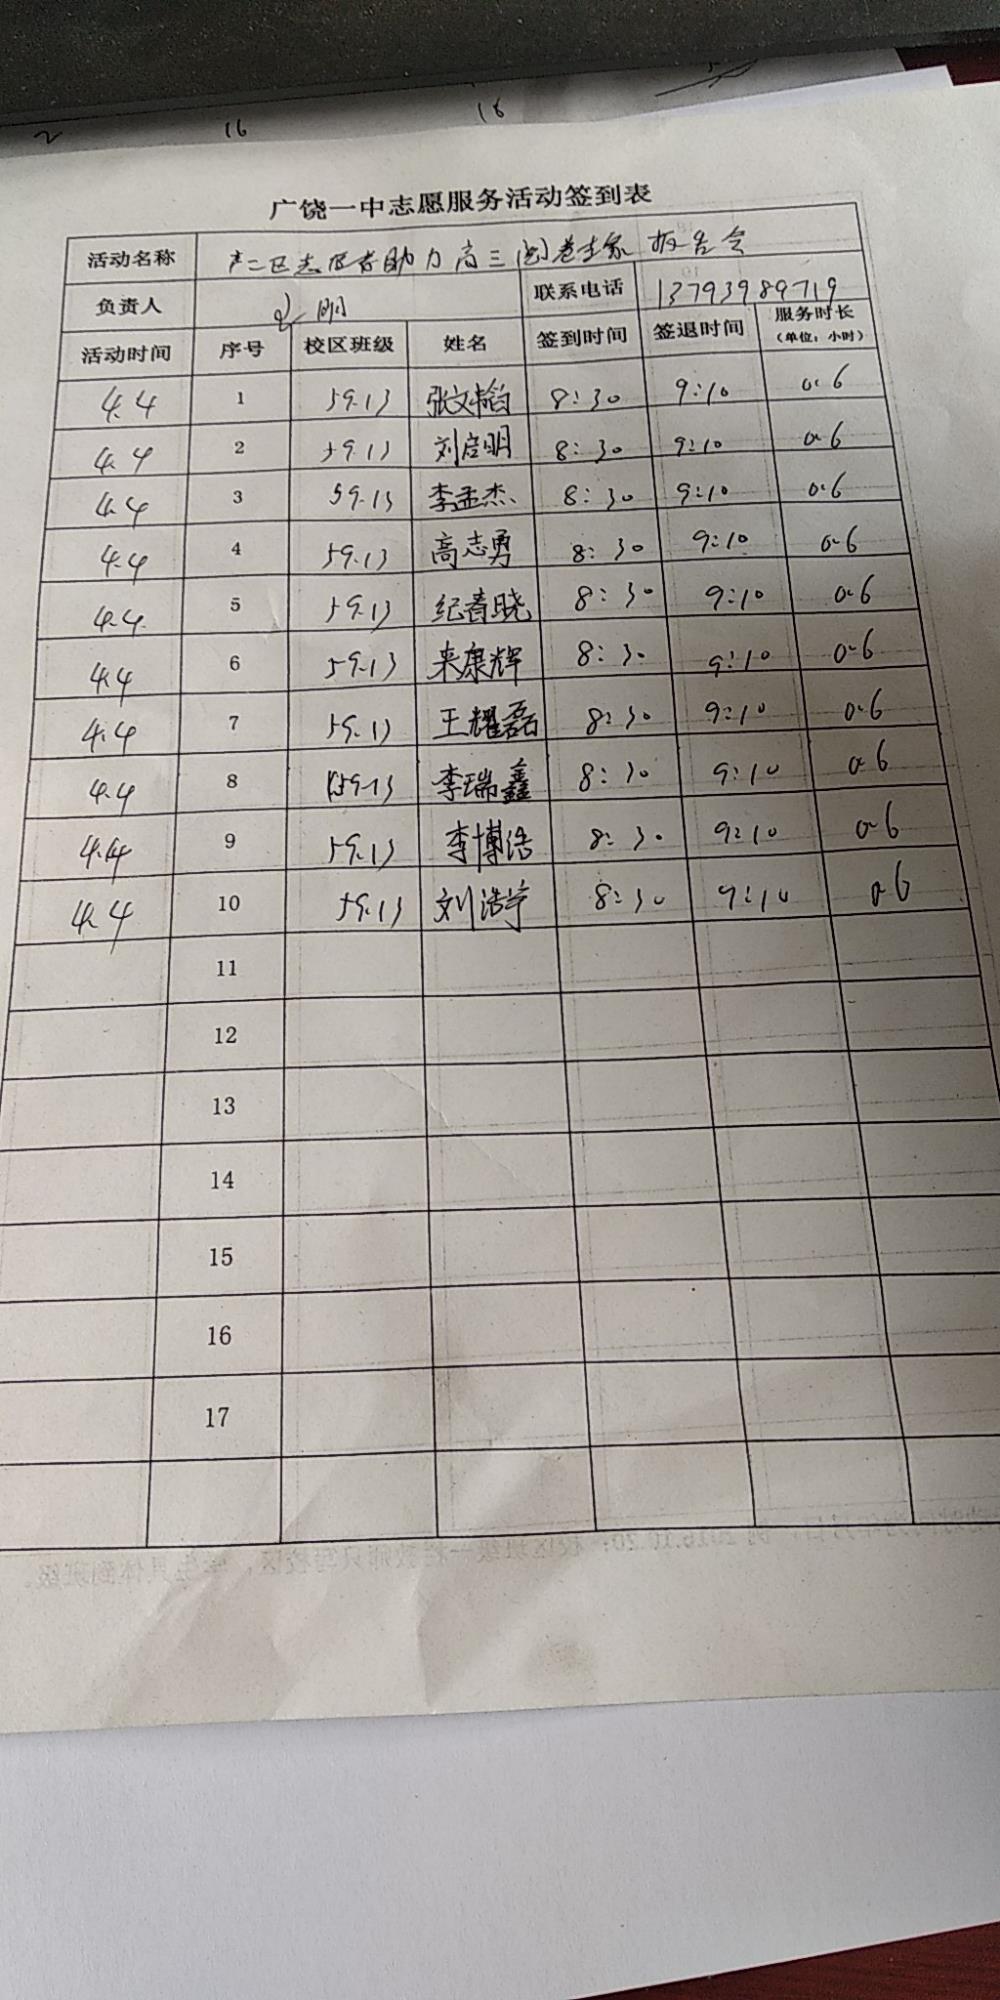 2 16 16
广饶一中志愿服务活动签到表
活动名称 二区志愿者助力高三阅卷专家报告会
负责人 明 联系电话 13793989719
活动时间 序号 校区班级 姓名 签到时间 签退时间 服务时长(单位:小时)
4.4 1 59.13 张文韬 8:30 9:10 0.6
4.4 2 59.13 刘启明 8:30 9:10 0.6
4.4 3 59.13 李孟杰 8:30 9:10 0.6
4.4 4 59.13 高志勇 8:30 9:10 0.6
4.4 5 59.13 纪春晓 8:30 9:10 0.6
4.4 6 59.13 来康辉 8:30 9:10 0.6
4.4 7 59.13 王耀磊 8:30 9:10 0.6
4.4 8 59.13 李瑞鑫 8:30 9:10 0.6
4.4 9 59.13 李博浩 8:30 9:10 0.6
4.4 10 59.13 刘浩宇 8:30 9:10 0.6
11
12
13
14
15
16
17